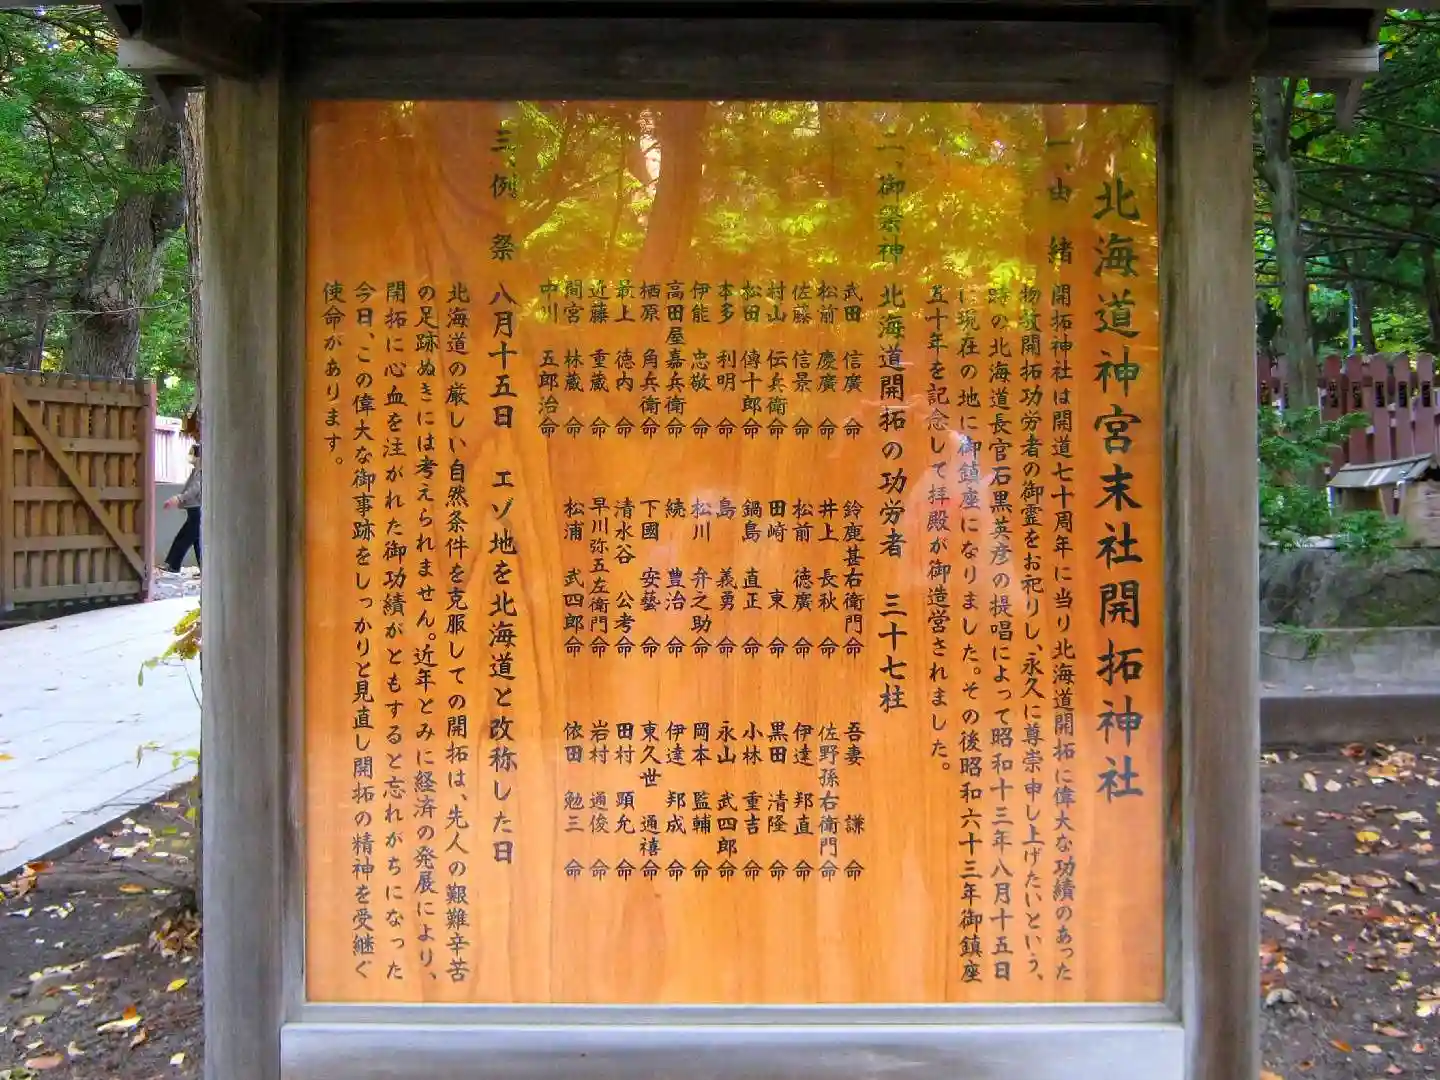 北海道神宮末社開拓神社
一、由緒 開拓神社は開道七十周年に当り北海道開拓に偉大な功績のあった
物故開拓功労者の御霊をお祀りし、永久に尊崇申し上げたいという、
時の北海道長官石黒英彦の提唱によって昭和十三年八月十五日
に現在の地に御鎮座になりました。その後昭和六十三年御鎮座
五十年を記念して拝殿が御造営されました。
二、御祭神 北海道開拓の功労者 三十七柱
武田 信廣 命 鈴鹿甚右衛門 命 吾妻 謙 命
松前 慶廣 命 井上 長秋 命 佐野孫右衛門 命
佐藤 信景 命 松前 徳廣 命 伊達 邦直 命
村山 伝兵衛 命 田崎 東 命 黒田 清隆 命
松田 傳十郎 命 鍋島 直正 命 小林 重吉 命
本多 利明 命 島 義勇 命 永山 武四郎 命
伊能 忠敬 命 松川 弁之助 命 岡本 監輔 命
高田屋嘉兵衛 命 続 豊治 命 伊達 邦成 命
栖原 角兵衛 命 下國 安藝 命 東久世 通禧 命
最上 徳内 命 清水谷 公考 命 田村 顕允 命
近藤 重蔵 命 早川弥五左衛門 命 岩村 通俊 命
間宮 林蔵 命 松浦 武四郎 命 依田 勉三 命
中川 五郎治 命
三、例祭 八月十五日 エゾ地を北海道と改称した日
北海道の厳しい自然条件を克服しての開拓は、先人の艱難辛苦
の足跡ぬきには考えられません。近年とみに経済の発展により、
開拓に心血を注がれた御功績がともすると忘れがちになった
今日、この偉大な御事跡をしっかりと見直し開拓の精神を受継ぐ
使命があります。